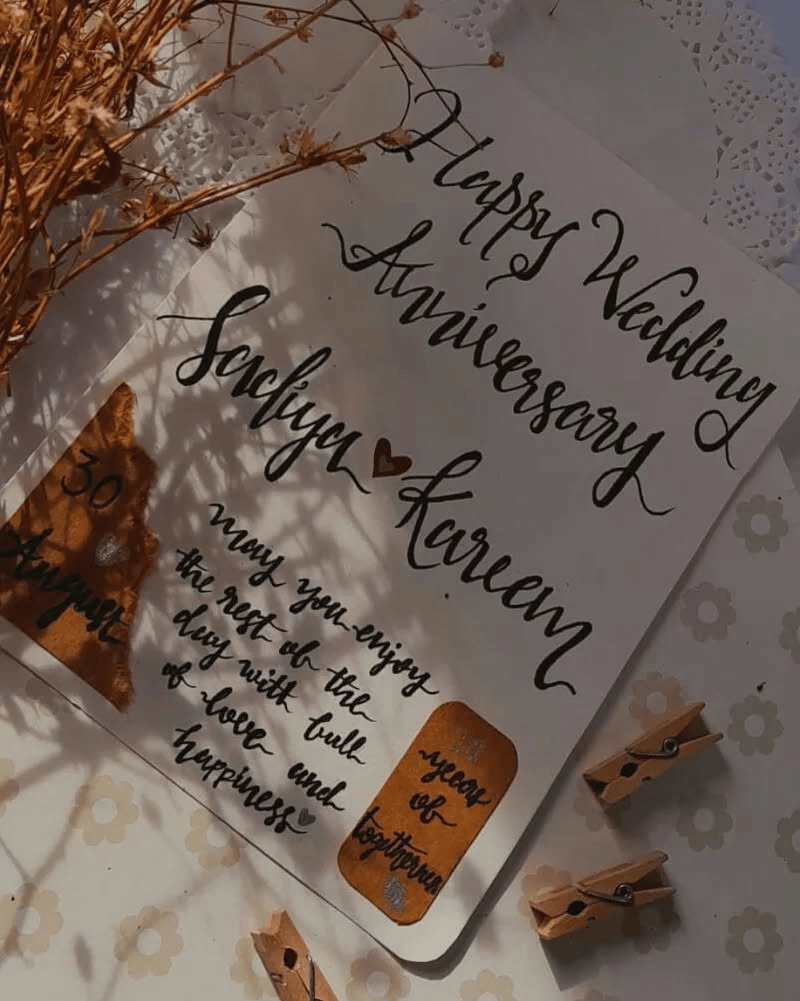 Happy Wedding
Anniversary
Sadiya Kareem
30
August
may you enjoy
the rest of the
day with full
of love and
happiness
year
of